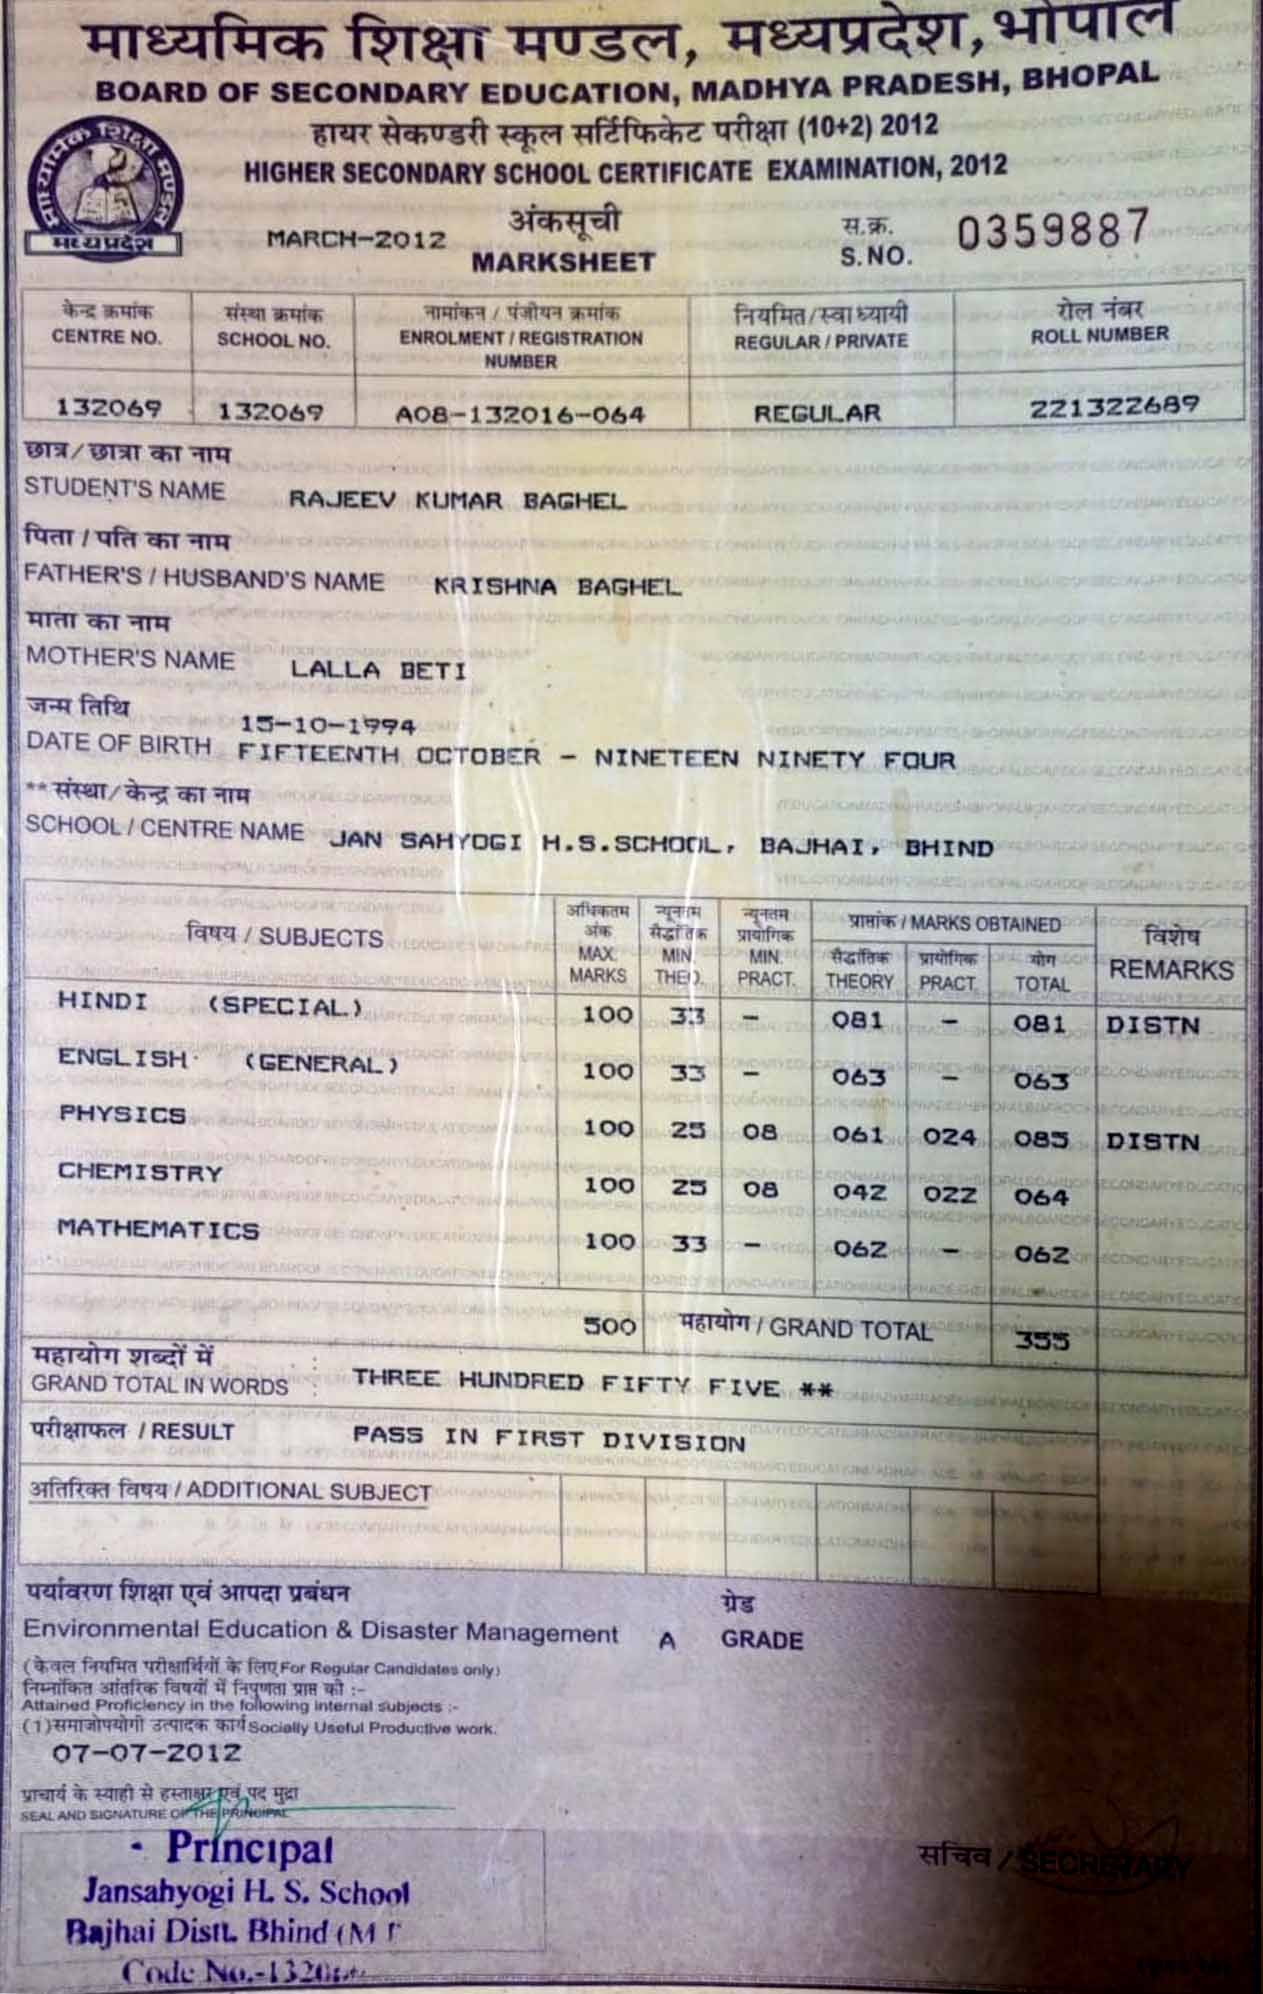 माध्यमिक शिक्षा मण्डल, मध्यप्रदेश, भोपाल
BOARD OF SECONDARY EDUCATION, MADHYA PRADESH, BHOPAL
हायर सेकण्डरी स्कूल सर्टिफिकेट परीक्षा (10+2) 2012
HIGHER SECONDARY SCHOOL CERTIFICATE EXAMINATION, 2012
माध्यमिक शिक्षा मण्डल
मध्यप्रदेश
MARCH-2012 अंकसूची स.क्र. 0359887
MARKSHEET S.NO.
केन्द्र क्रमांक संस्था क्रमांक नामांकन / पंजीयन क्रमांक नियमित/स्वाध्यायी रोल नंबर
CENTRE NO. SCHOOL NO. ENROLMENT / REGISTRATION NUMBER REGULAR / PRIVATE ROLL NUMBER
132069 132069 A08-132016-064 REGULAR 221322689
छात्र/छात्रा का नाम
STUDENT'S NAME RAJEEV KUMAR BAGHEL
पिता / पति का नाम
FATHER'S / HUSBAND'S NAME KRISHNA BAGHEL
माता का नाम
MOTHER'S NAME LALLA BETI
जन्म तिथि 15-10-1994
DATE OF BIRTH FIFTEENTH OCTOBER - NINETEEN NINETY FOUR
** संस्था/केन्द्र का नाम
SCHOOL / CENTRE NAME JAN SAHYOGI H.S.SCHOOL, BAJHAI, BHIND
विषय / SUBJECTS अधिकतम अंक MAX. MARKS न्यूनतम सैद्धांतिक MIN. THEO. न्यूनतम प्रायोगिक MIN. PRACT. प्राप्तांक / MARKS OBTAINED विशेष REMARKS
सैद्धांतिक THEORY प्रायोगिक PRACT. योग TOTAL
HINDI (SPECIAL) 100 33 - 081 - 081 DISTN
ENGLISH (GENERAL) 100 33 - 063 - 063
PHYSICS 100 25 08 061 024 085 DISTN
CHEMISTRY 100 25 08 042 022 064
MATHEMATICS 100 33 - 062 - 062
500 महायोग / GRAND TOTAL 355
महायोग शब्दों में :
GRAND TOTAL IN WORDS : THREE HUNDRED FIFTY FIVE **
परीक्षाफल / RESULT PASS IN FIRST DIVISION
अतिरिक्त विषय / ADDITIONAL SUBJECT
पर्यावरण शिक्षा एवं आपदा प्रबंधन ग्रेड
Environmental Education & Disaster Management A GRADE
(केवल नियमित परीक्षार्थियों के लिए For Regular Candidates only)
निम्नांकित आंतरिक विषयों में निपुणता प्राप्त की :-
Attained Proficiency in the following internal subjects :-
(1) समाजोपयोगी उत्पादक कार्य Socially Useful Productive work.
07-07-2012
प्राचार्य के स्याही से हस्ताक्षर एवं पद मुद्रा
SEAL AND SIGNATURE OF THE PRINCIPAL
Principal
Jansahyogi H. S. School
Bajhai Distt. Bhind (M
Code No.-
सचिव / SECRETARY